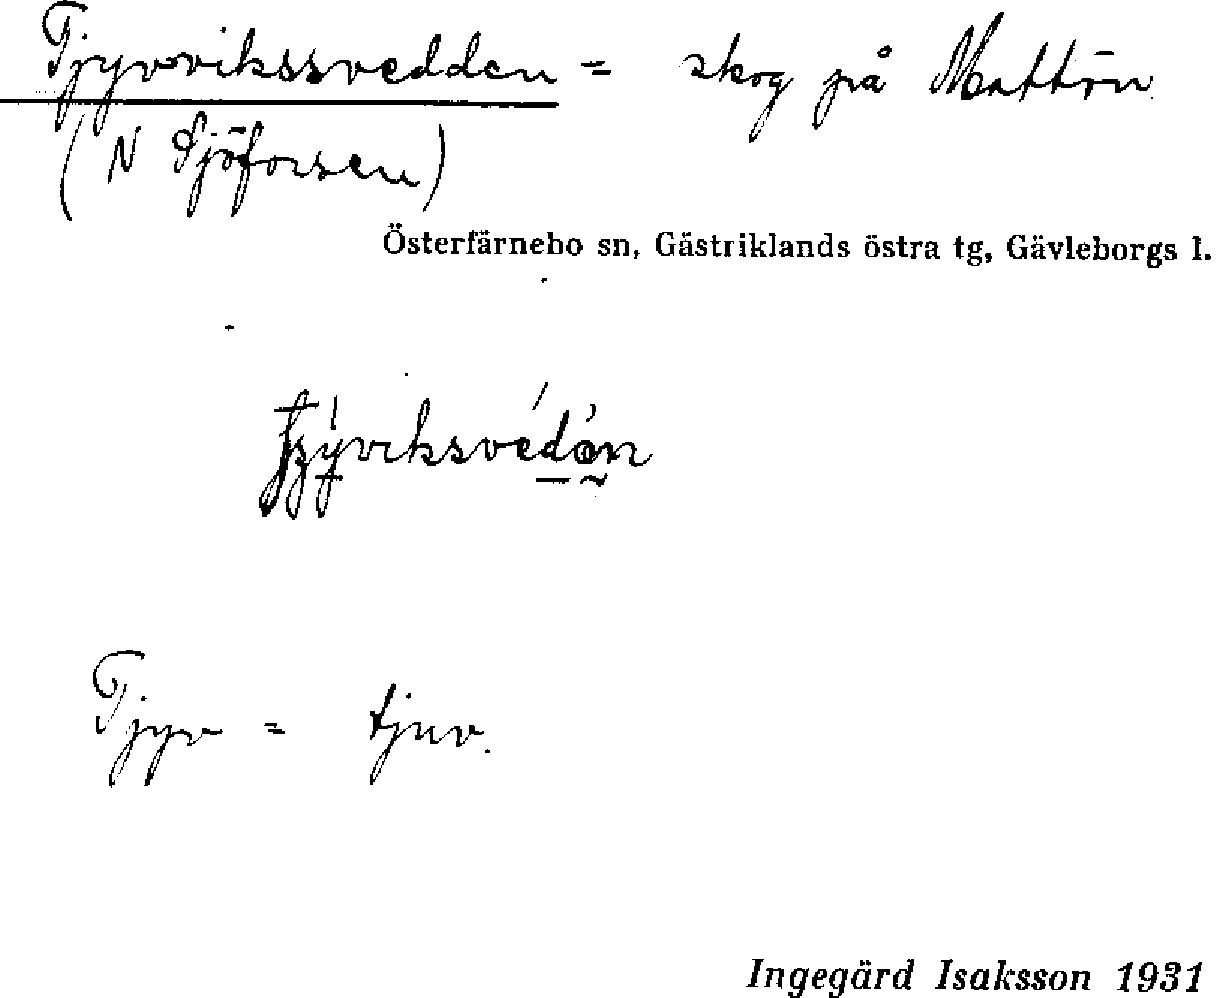 Tjyvvikssvedden = skog på Mattön.
(N Sjöforsen)
Österfärnebo sn, Gästriklands östra tg, Gävleborgs l.
Tjyv = tjuv.
Ingegärd Isaksson 1931